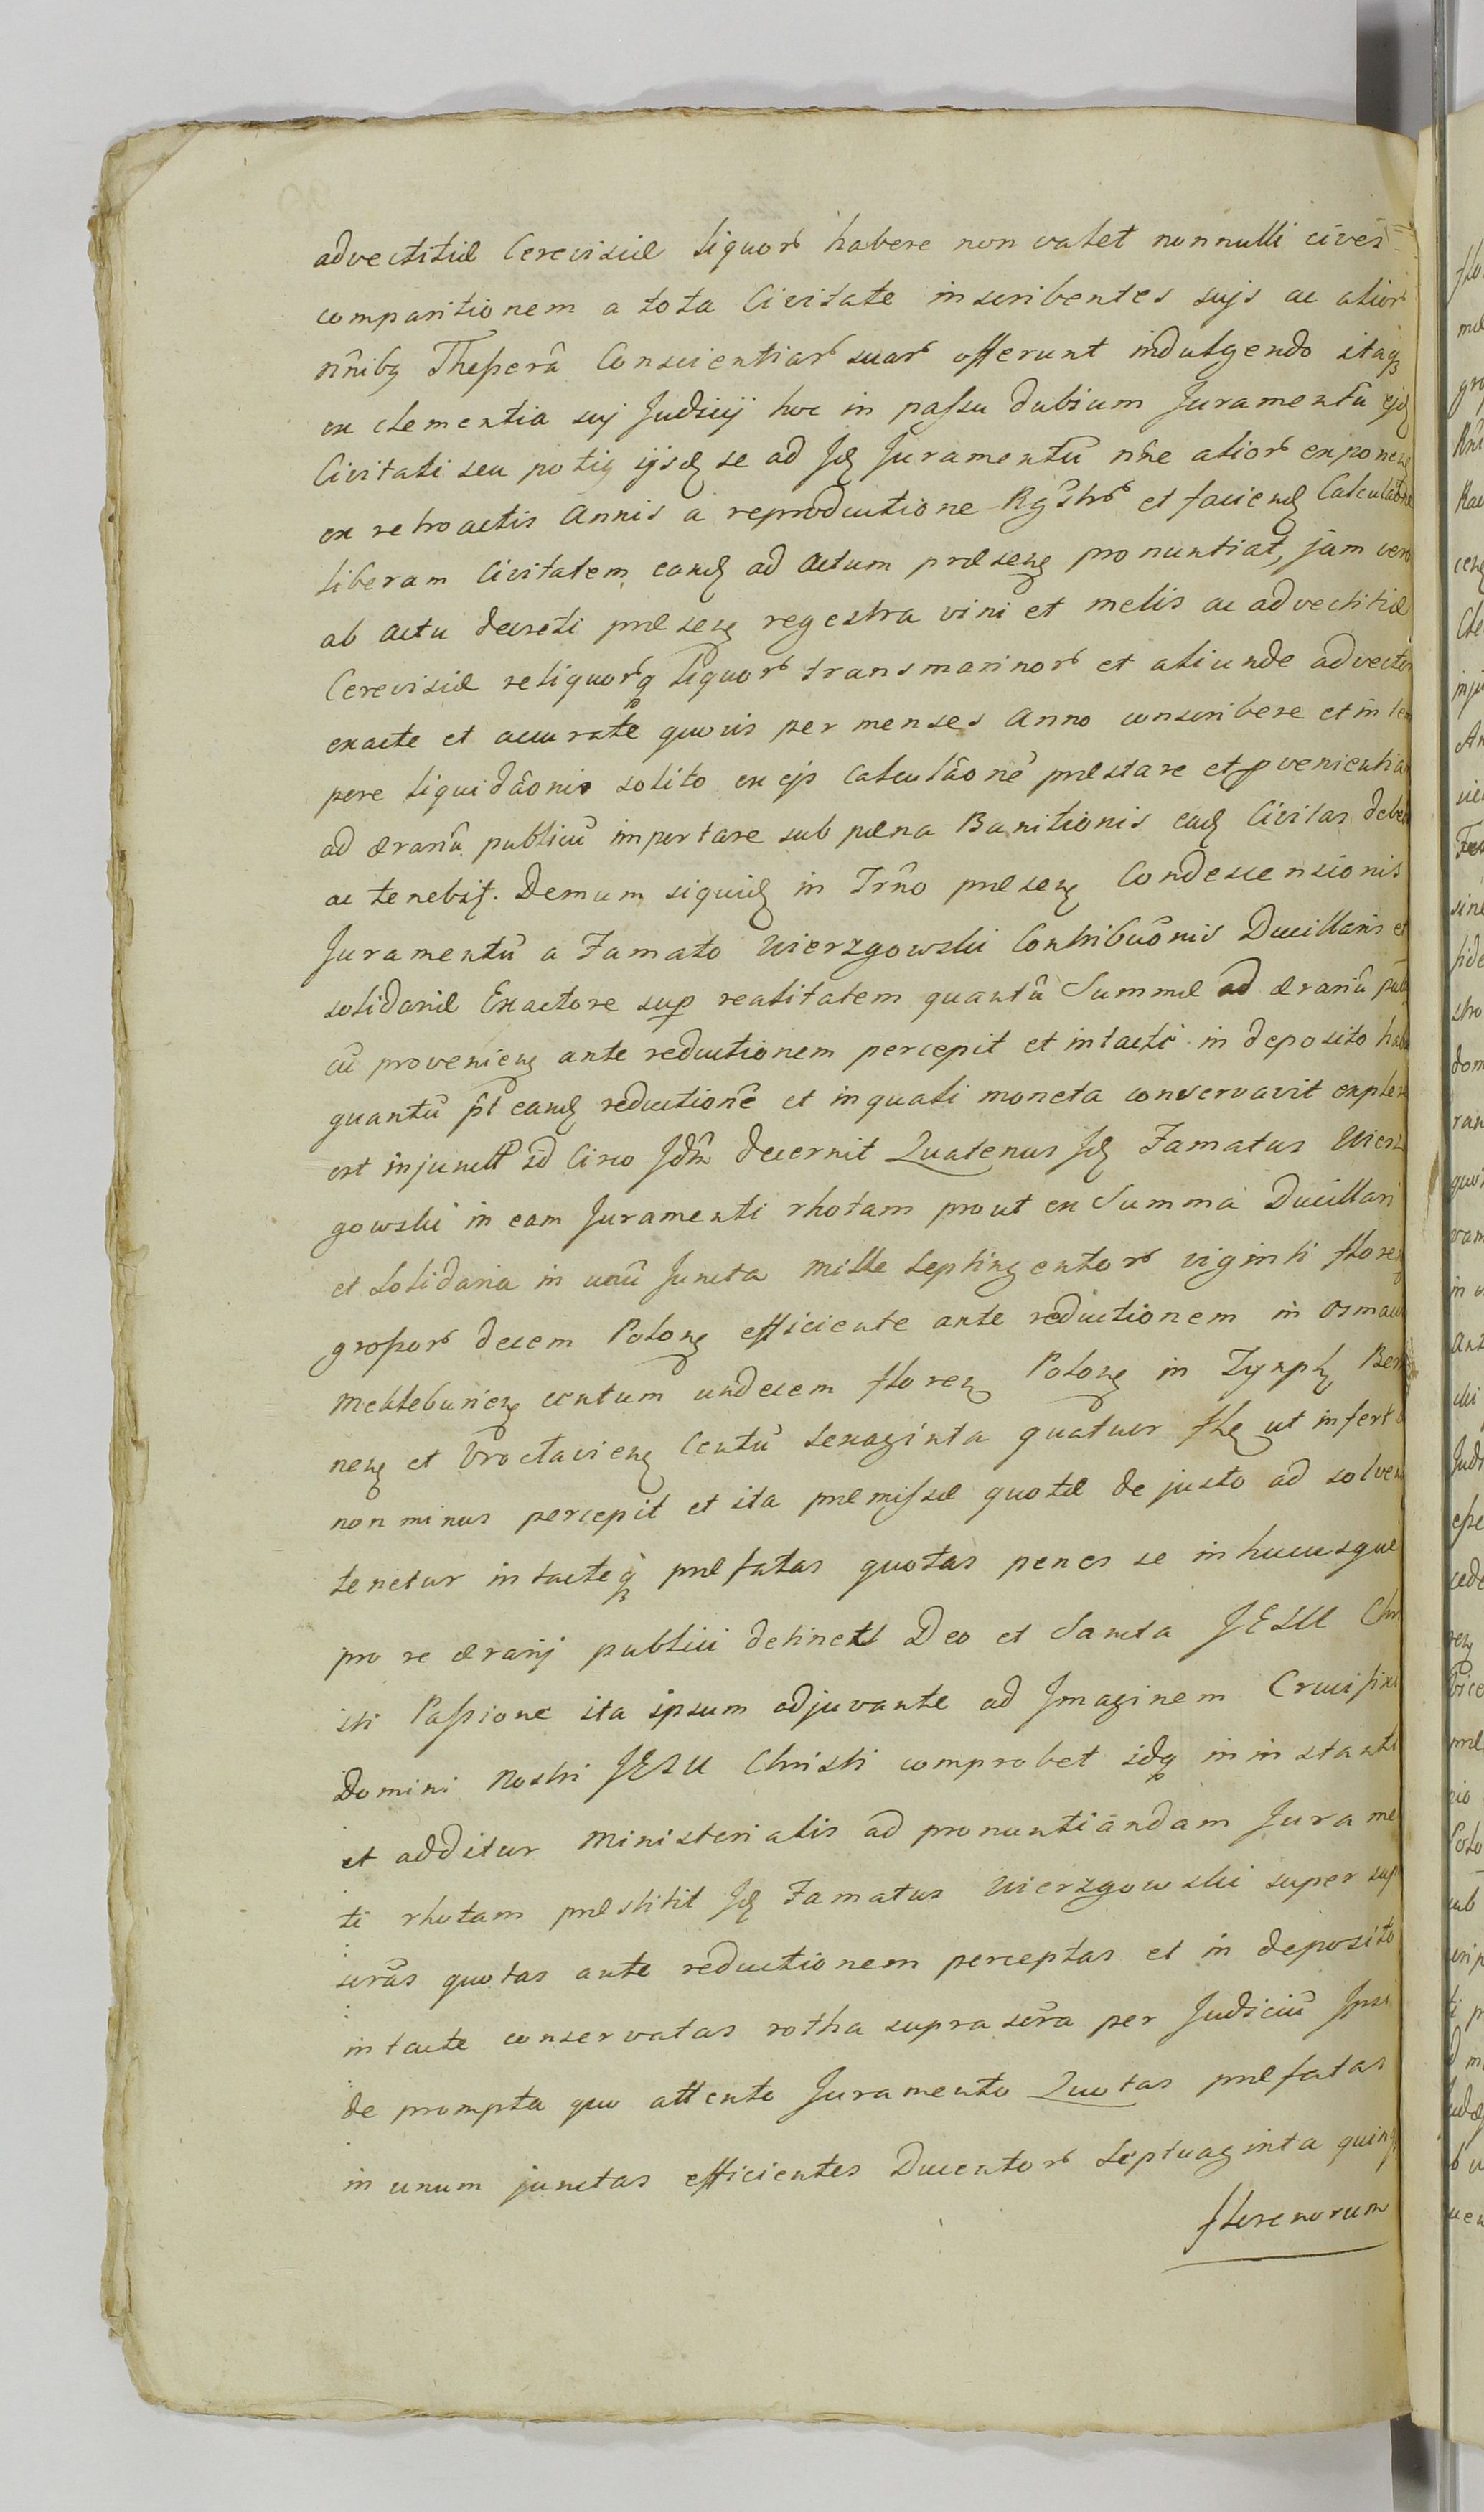 advectitiæ Cerevisiæ liquorb habere non valet nonnulli cives
comparitionem a tota Civitate inscribentes sujs ac aliorb
nñibq Thesserâ Conscientiarb suarb offerunt indulgendo itaqz
ex clementia suj Judicij hoc in passu dubium Juramentũ ejq
Civitati seu potiq ijsdq se ad Jdq Juramentũ nñe aliorb exponeñ
ex retroactis Annis a reproductione Rgs̃trb et faciendq Calculatõe
liberam Civitatem eandq ad Actum præsenq pronuntiat, jam vero
ab actu decreti præsenq regestra vini et melis ac advectitiæ
Cerevisiæ reliquorbq liquorb transmarinorb et aliunde advector
exacte et accurate quovis per menses Anno conscribere et in tem
pore liquidãonis solito ex ejs calculãonẽ præstare et pvenientia
ad ærariũ publicũ importare sub pæna Banitionis eadq Civitas debet
ac tenebitq. Demum siquidq in Trño præsenq Condescensionis
Juramentũ a Famato Wierzgowski Contribuõnis Ducillaris et
solidariæ Exactore sup realitatem quantũ Summæ ad ærariũ publi
cũ provenienq ante reductionem percepit et intacte in deposito habe
quantũ p̃t eandq reductionẽ et in quali moneta conservavit explere
est injunctũ id Circo Jdm̃ decernit Quatenus Jdq Famatus Wierz
gowski in eam Juramenti rhotam prout ex Summa Ducillari
et Solidaria in unũ Juncta mille septingentorb viginti floreñ
grossorb decem Polonq efficiente ante reductionem in osmaci
meklebunienq centum undecem florenq Polonq in Tynphq Ber
nenq et Vroctavienq Centũ sexaginta quatuor flq ut infert
non minus percepit et ita præmissæ quotæ de justo ad solven
tenetur intacteqz præfatas quotas penes se in hucusque
pro re ærarij publici detinet Deo et Sancta JESU Chri
sti Passione ita ipsum adjuvante ad Jmaginem Crucifixi
Domini Nostri JESU Christi comprobet idq in instanti
et additur Ministerialis ad pronuntiandam Jurame
ti rhotam præstitit Jdq Famatus Wierzgowski super sup
scrãs quotas ante reductionem perceptas et in deposito
intacte conservatas rotha suprascrã per Judiciũ Jpsi
de prompta quo attento Juramento Quotas præfatas
in unum junctas efficientes Ducentorb Septuaginta quinq
florenorum